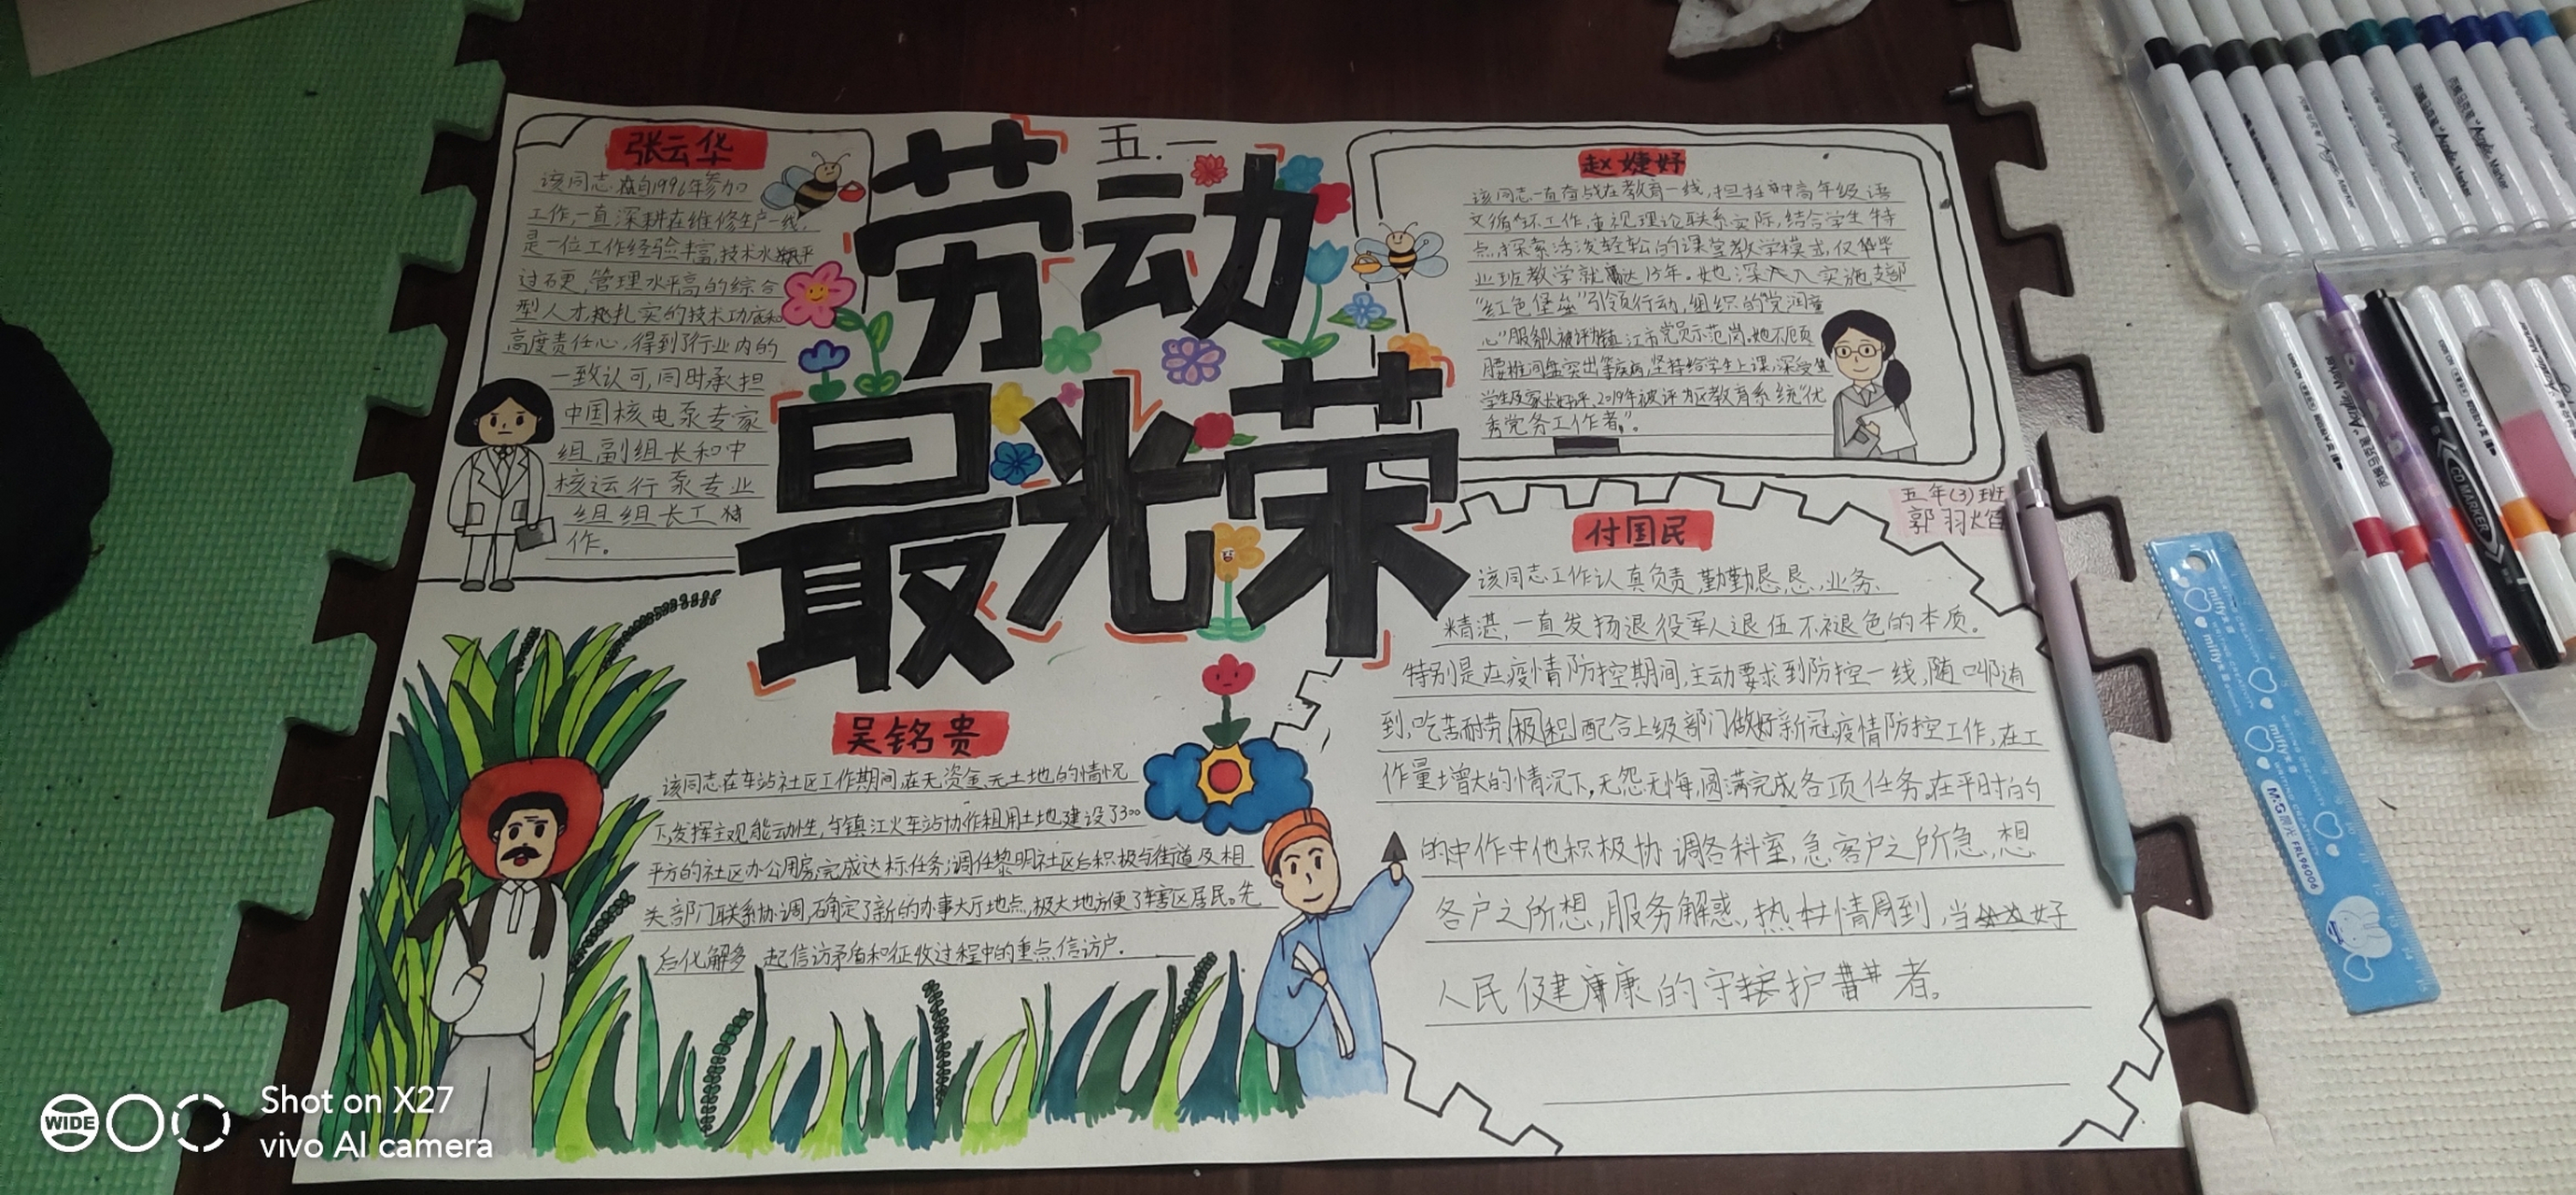 五.一
劳动
最光荣
张云华
该同志自1996年参加
工作,一直深耕在维修生产一线,
是一位工作经验丰富,技术水平
过硬,管理水平高的综合
型人才,扎实的技术功底和
高度责任心,得到了行业内的
一致认可,同时承担
中国核电泵专家
组副组长和中
核运行泵专业
组组长工
作。
赵婕妤
该同志一直奋战在教育一线,担任高年级语
文循环工作,重视理论联系实际,结合学生特
点,探索活泼轻松的课堂教学模式,仅毕
业班教学就达15年。她深入实施支部
“红色堡垒”引领行动,组织的“党润童
心”服务队被评为镇江市党员示范岗。她不顾
腰椎间盘突出等疾病,坚持给学生上课,深受
学生及家长好评,2019年被评为区教育系统“优
秀党务工作者”。
五年(3)班
郭羽焰
付国民
该同志工作认真负责,勤勤恳恳,业务
精湛,一直发扬退役军人退伍不褪色的本质。
特别是在疫情防控期间,主动要求到防控一线,随叫随
到,吃苦耐劳,积极配合上级部门做好新冠疫情防控工作,在工
作量增大的情况下,无怨无悔,圆满完成各项任务。在平时的
的中作中他积极协调各科室,急客户之所急,想
客户之所想,服务解惑,热情周到,当好
人民健康的守护者。
吴铭贵
该同志在车站社区工作期间,在无资金、无土地的情况
下,发挥主观能动性,与镇江火车站协作租用土地建设了300
平方的社区办公用房,完成达标任务;调任黎明社区后积极与街道及相
关部门联系协调,确定了新的办事大厅地点,极大地方便了辖区居民。先
后化解多起信访矛盾和征收过程中的重点信访户.
CD MARKER
Acrylic Marker
miffy
M&G 晨光 FRL96006
WIDE
Shot on X27
vivo AI camera